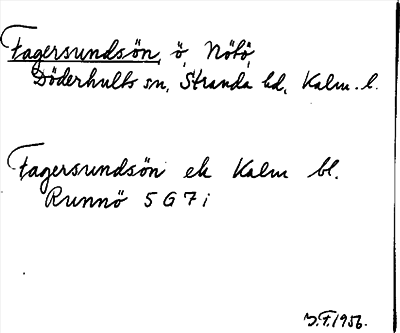 Fagersundsön, ö, Nötö,
Döderhults sn, Stranda hd, Kalm. l.
Fagersundsön ek Kalm bl.
Runnö 5 G 7 i
1956.